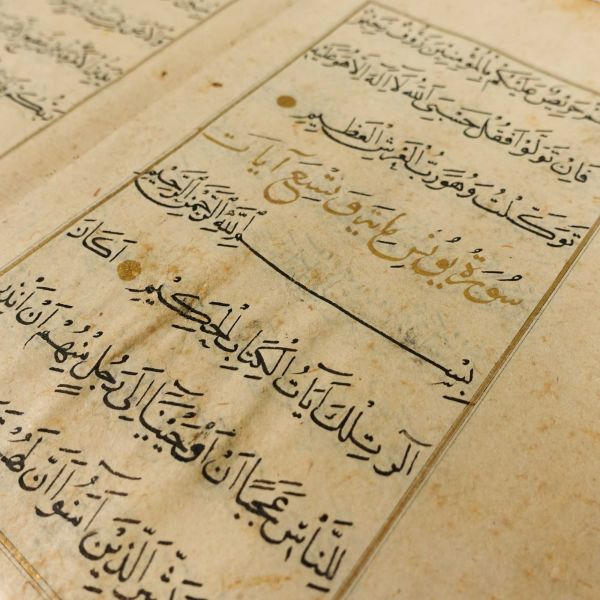 حَرِيصٌ عَلَيْكُمْ بِالْمُؤْمِنِينَ رَؤُفٌ رَحِيمٌ
فَاِنْ تَوَلَّوْا فَقُلْ حَسْبِيَ اللّٰهُ لَا اِلٰهَ اِلَّا هُوَ عَلَيْهِ
تَوَكَّلْتُ وَهُوَ رَبُّ الْعَرْشِ الْعَظِيمِ
سُورَةُ يُونُسَ مِائَةٌ وَتِسْعُ آيَاتٍ
بِسْمِ اللّٰهِ الرَّحْمٰنِ الرَّحِيمِ
الٓرٰ تِلْكَ آيَاتُ الْكِتَابِ الْحَكِيمِ اَكَانَ
لِلنَّاسِ عَجَبًا اَنْ اَوْحَيْنَآ اِلٰى رَجُلٍ مِنْهُمْ اَنْ اَنْذِرِ
الَّذِينَ آمَنُوٓا اَنَّ لَهُمْ